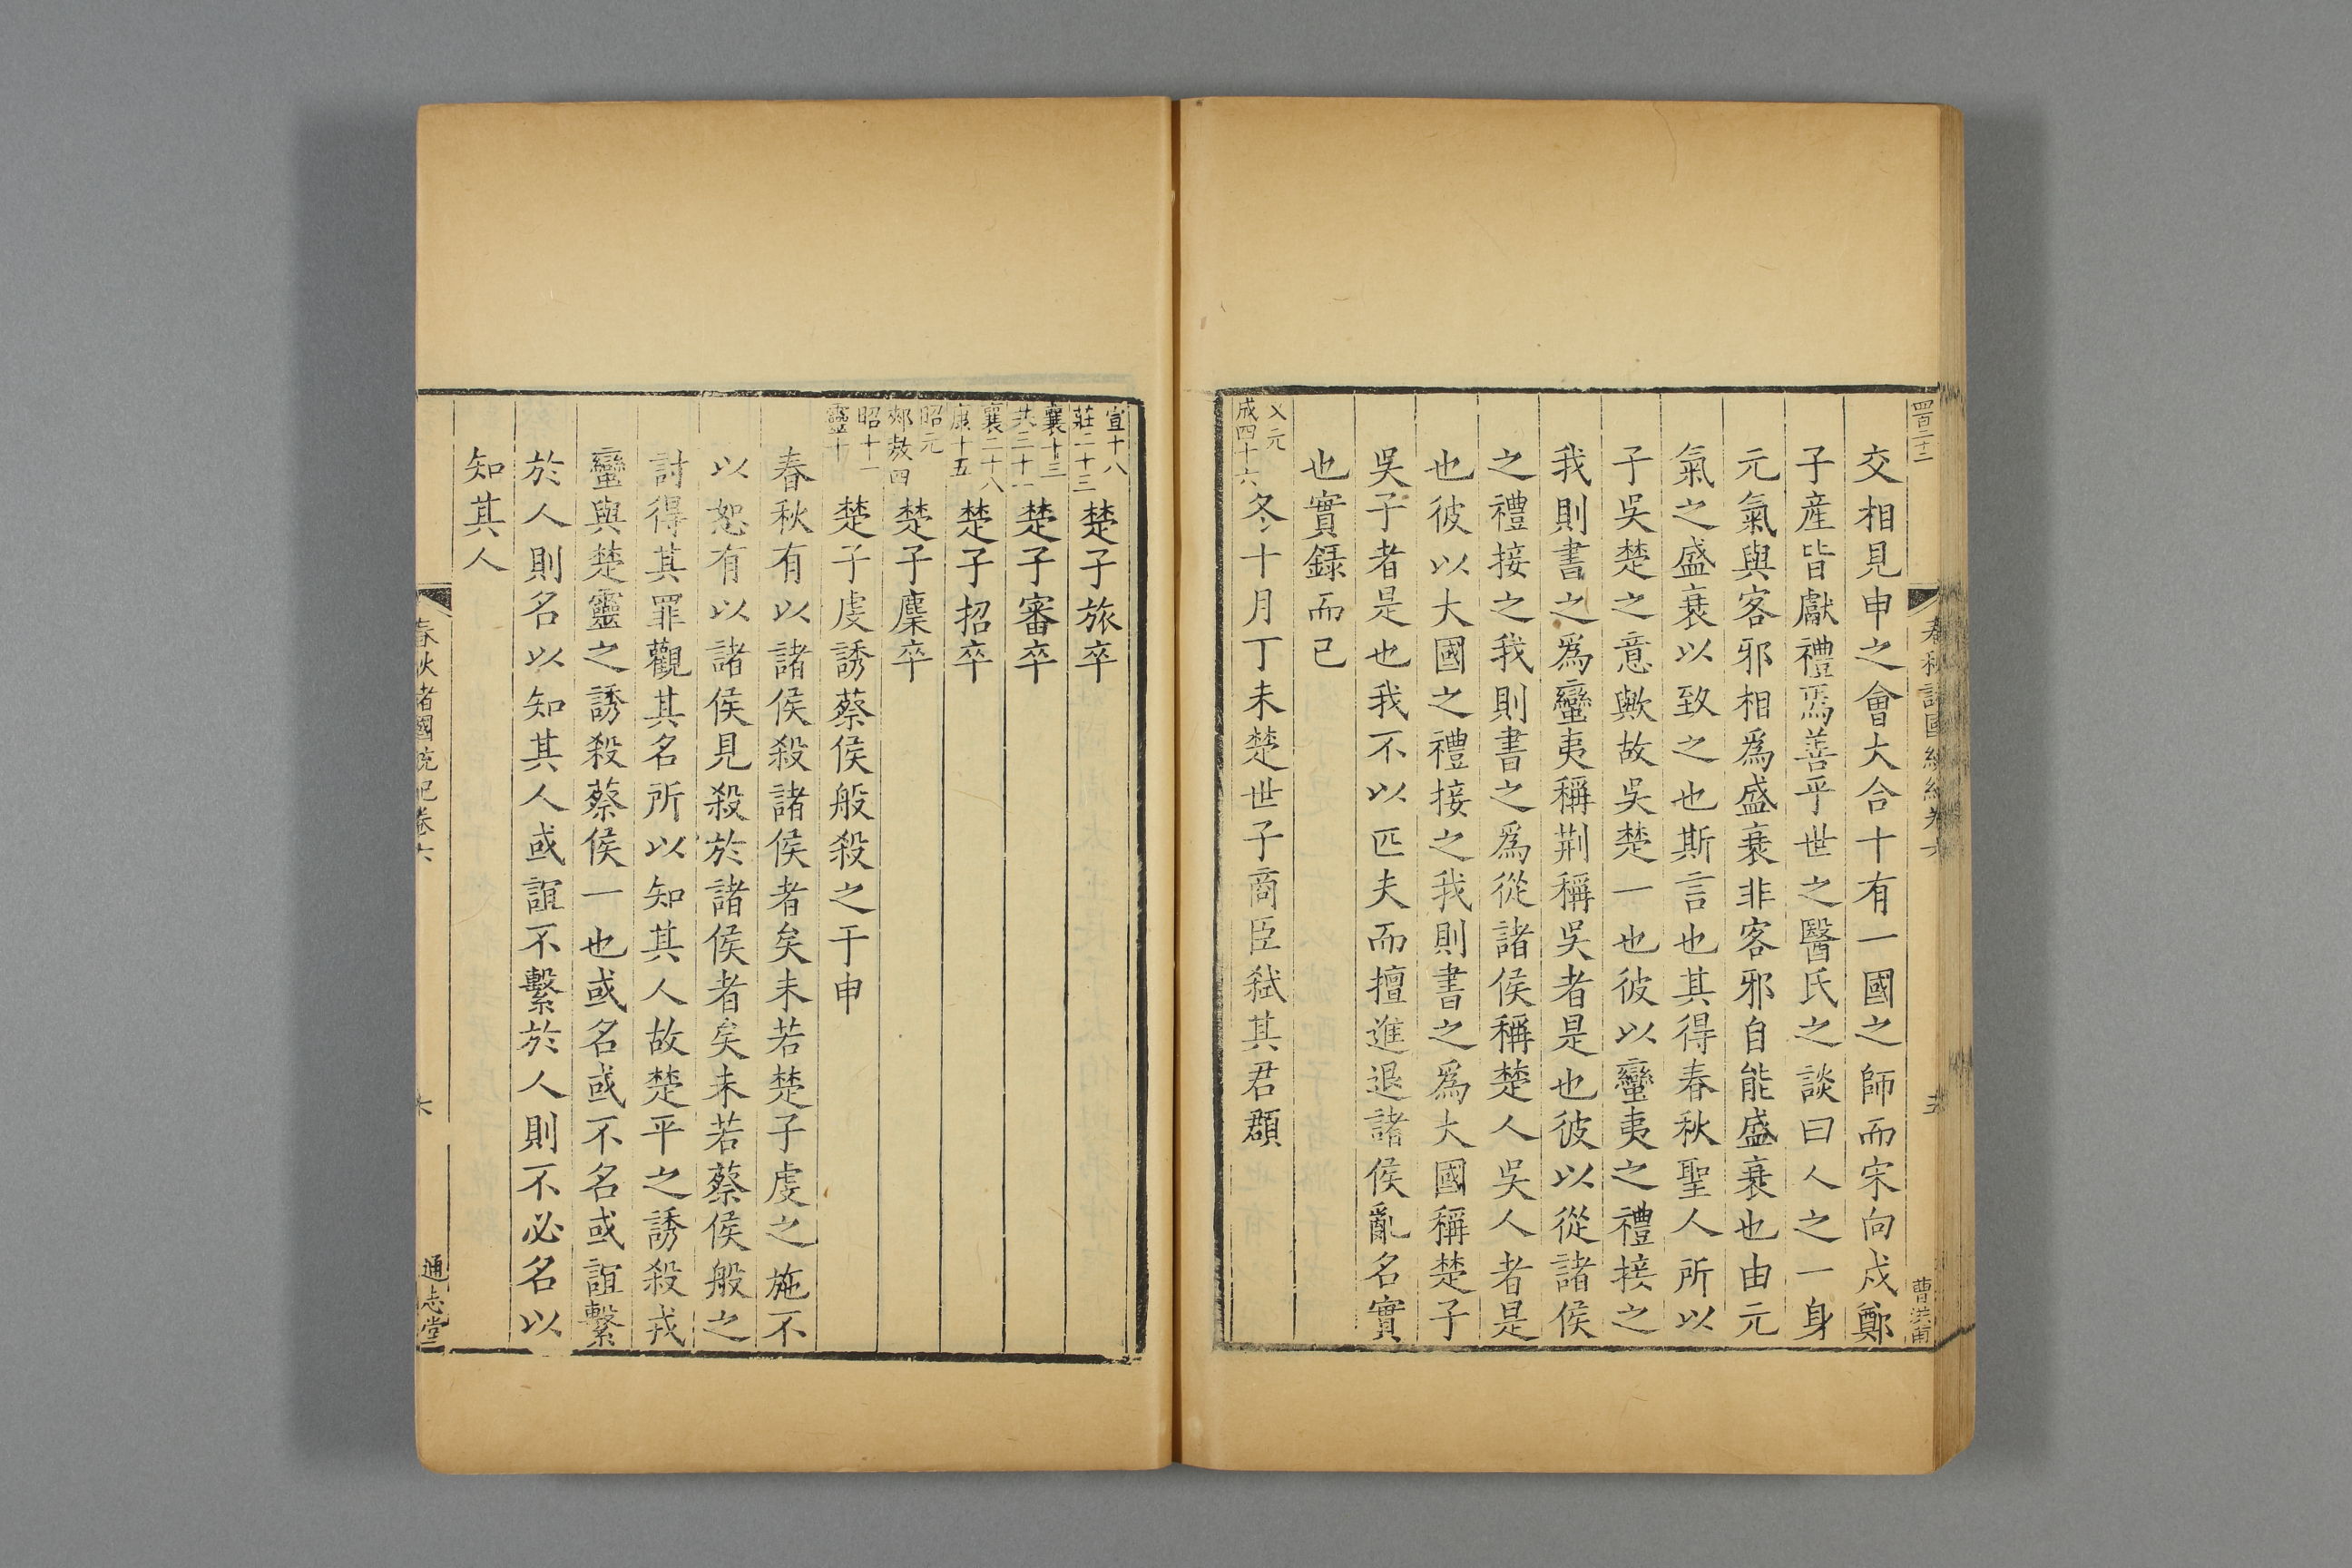 交相見申之會大合十有一國之師而宋向戍鄭
子產皆獻禮焉善乎世之醫氏之談曰人之一身
元氣與客邪相爲盛衰非客邪自能盛衰也由元
氣之盛衰以致之也斯言也其得春秋聖人所以
予吳楚之意歟故吳楚一也彼以蠻夷之禮接之
我則書之爲蠻夷稱荆稱吳者是也彼以從諸侯
之禮接之我則書之爲從諸侯稱楚人吳人者是
也彼以大國之禮接之我則書之爲大國稱楚子
吳子者是也我不以匹夫而擅進退諸侯亂名實
也實録而已
文元
成四十六
冬十月丁未楚世子商臣弑其君頵
宣十八
莊二十三
楚子旅卒
襄十三
共三十一
楚子審卒
襄二十八
康十五
楚子招卒
昭元
郟敖四
楚子麇卒
昭十一
靈十
楚子虔誘蔡侯般殺之于申
春秋有以諸侯殺諸侯者矣未若楚子虔之施不
以恕有以諸侯見殺於諸侯者矣未若蔡侯般之
討得其罪觀其名所以知其人故楚平之誘殺戎
蠻與楚靈之誘殺蔡侯一也或名或不名或誼繫
於人則名以知其人或誼不繫於人則不必名以
知其人
春秋諸國統紀卷六
六
通志堂
曹洪甫